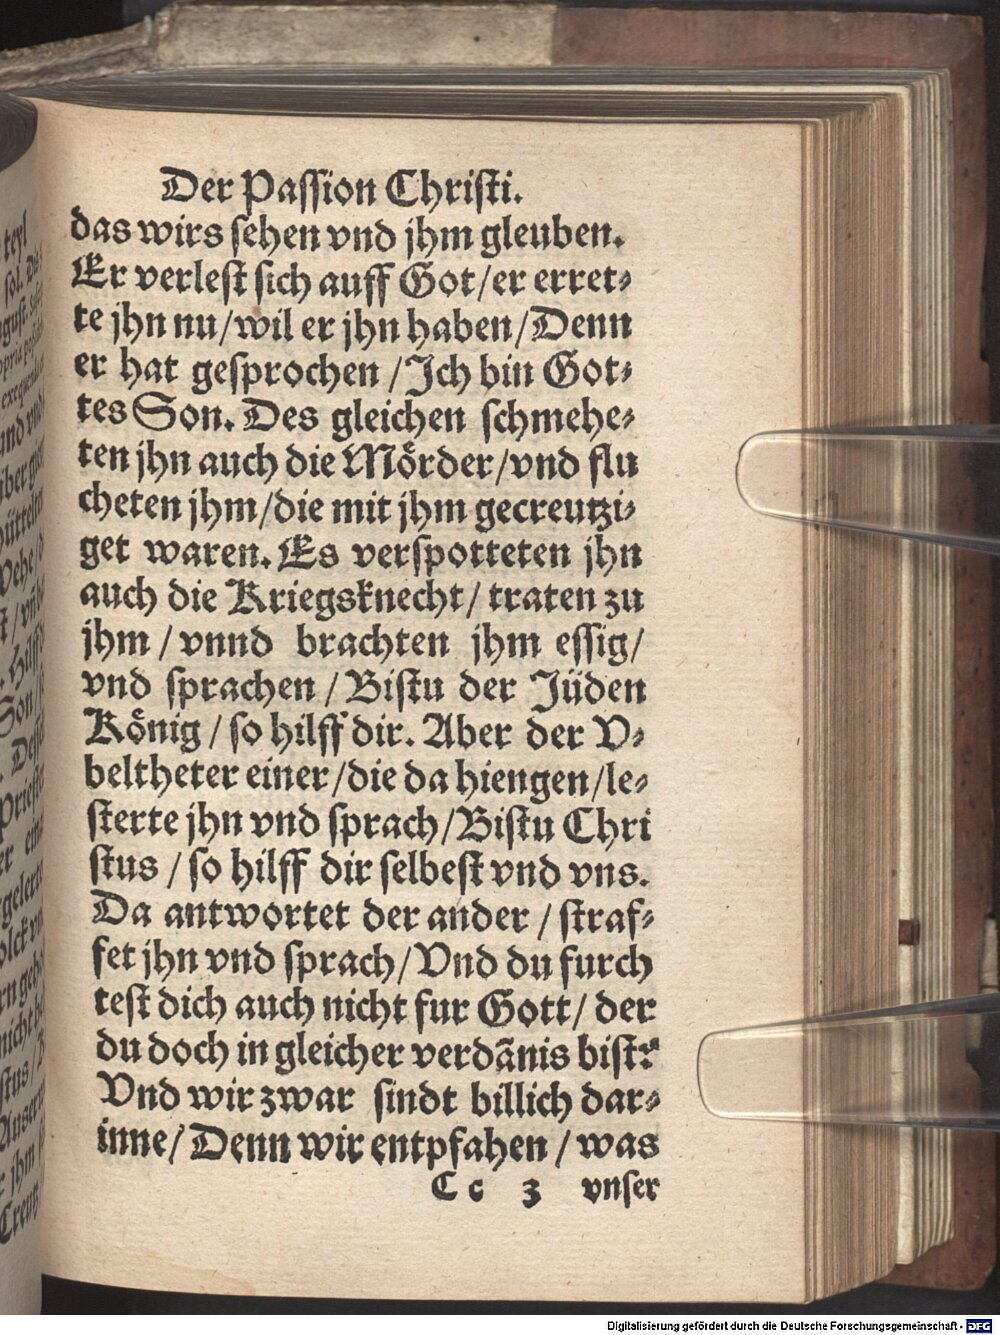 Der Passion Christi.
das wirs sehen vnd jhm gleuben.
Er verlest sich auff Got/er erret-
te jhn nu/wil er jhn haben/Denn
er hat gesprochen/Ich bin Got-
tes Son. Des gleichen schmehe-
ten jhn auch die Mörder/vnd flu
cheten jhm/die mit jhm gecreutzi-
get waren. Es verspotteten jhn
auch die Kriegsknecht/traten zu
jhm/vnnd brachten jhm essig/
vnd sprachen/Bistu der Jüden
König/so hilff dir. Aber der V-
beltheter einer/die da hiengen/le-
sterte jhn vnd sprach/Bistu Chri
stus/so hilff dir selbest vnd vns.
Da antwortet der ander/straf-
fet jhn vnd sprach/Vnd du furch
test dich auch nicht fur Gott/der
du doch in gleicher verdãnis bist?
Vnd wir zwar sindt billich dar-
inne/Denn wir entpfahen/was
Cc 3 vnser
teyl
sol.
Son
Digitalisierung gefördert durch die Deutsche Forschungsgemeinschaft - DFG